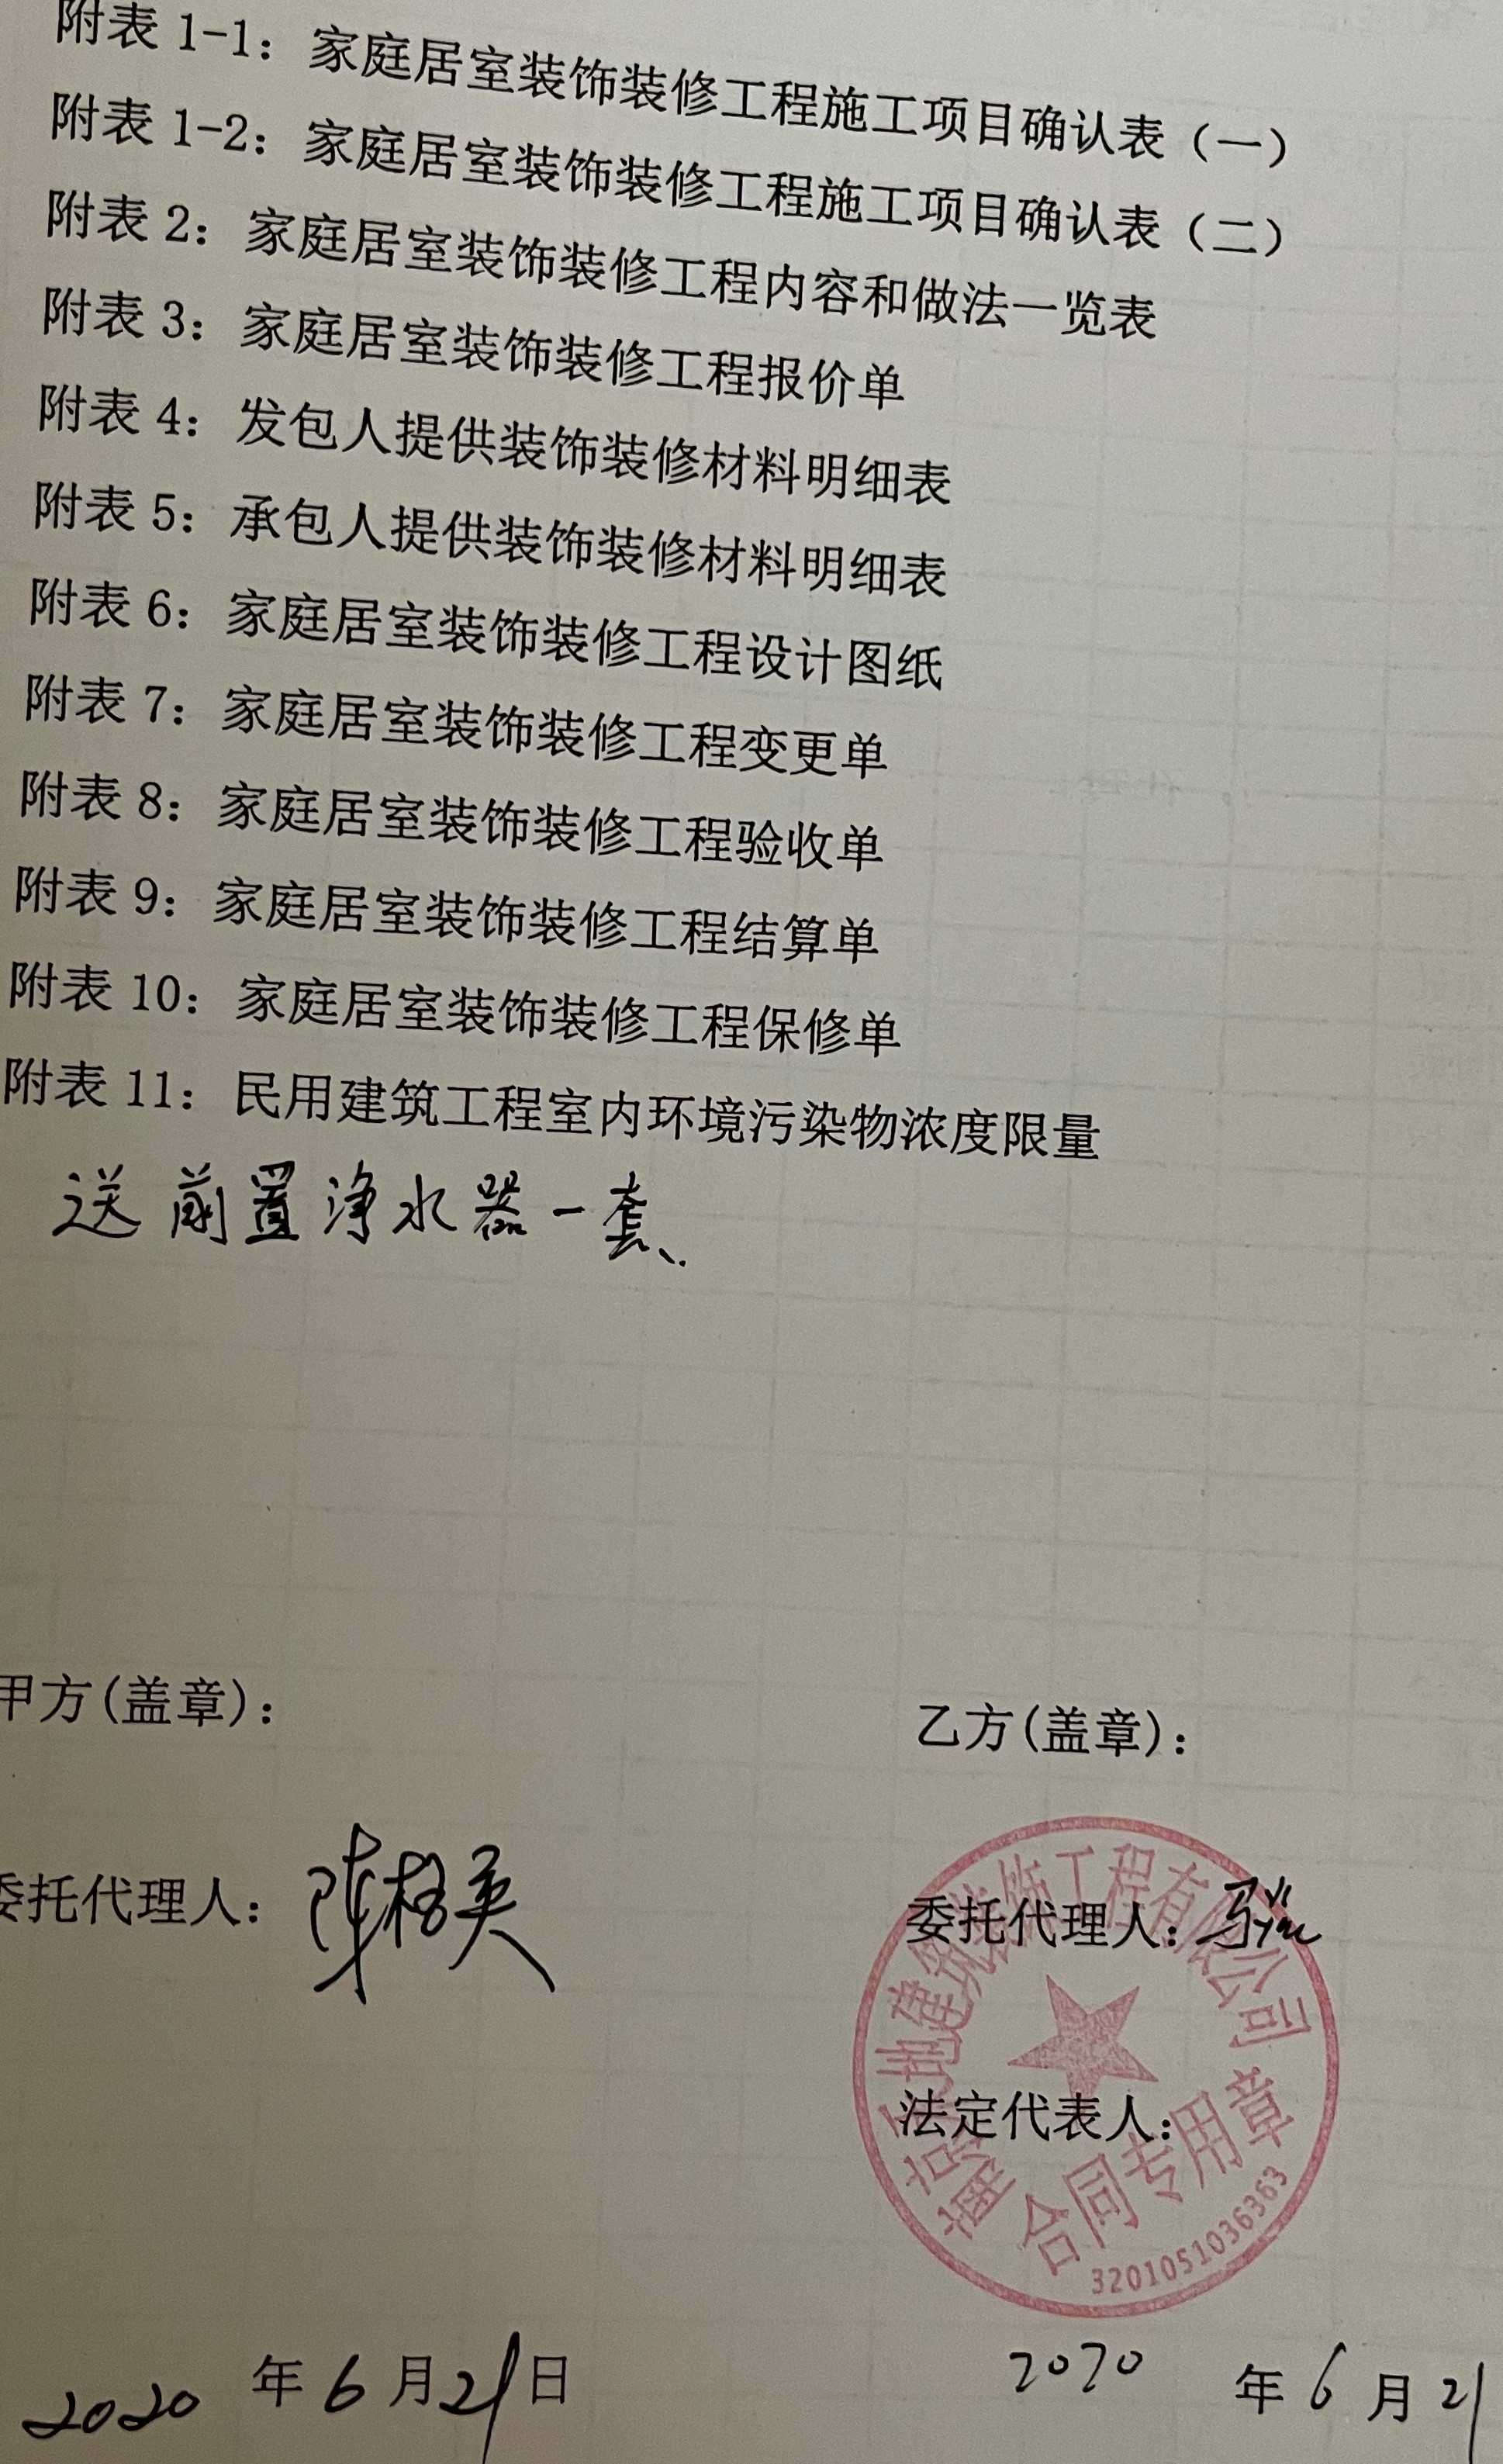 附表 1-1：家庭居室装饰装修工程施工项目确认表（一）
附表 1-2：家庭居室装饰装修工程施工项目确认表（二）
附表 2：家庭居室装饰装修工程内容和做法一览表
附表 3：家庭居室装饰装修工程报价单
附表 4：发包人提供装饰装修材料明细表
附表 5：承包人提供装饰装修材料明细表
附表 6：家庭居室装饰装修工程设计图纸
附表 7：家庭居室装饰装修工程变更单
附表 8：家庭居室装饰装修工程验收单
附表 9：家庭居室装饰装修工程结算单
附表 10：家庭居室装饰装修工程保修单
附表 11：民用建筑工程室内环境污染物浓度限量
送前置净水器一套、
甲方(盖章)：
乙方(盖章)：
委托代理人：陈
委托代理人：
地建筑装饰工程有限公司
法定代表人：
合同专用章
3201051036363
2020 年 6 月 21 日
2020 年 6 月 21